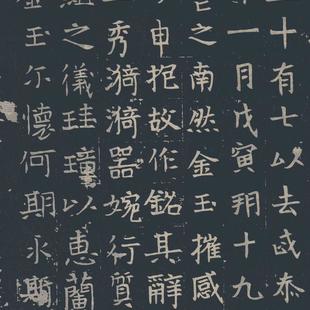 十有七以去
一月戊寅朔十九
之南然金玉摧感
申抱故作銘其辭
秀漪漪器婉行質
之儀珪璋以惠蘭
玉尔懷何期永